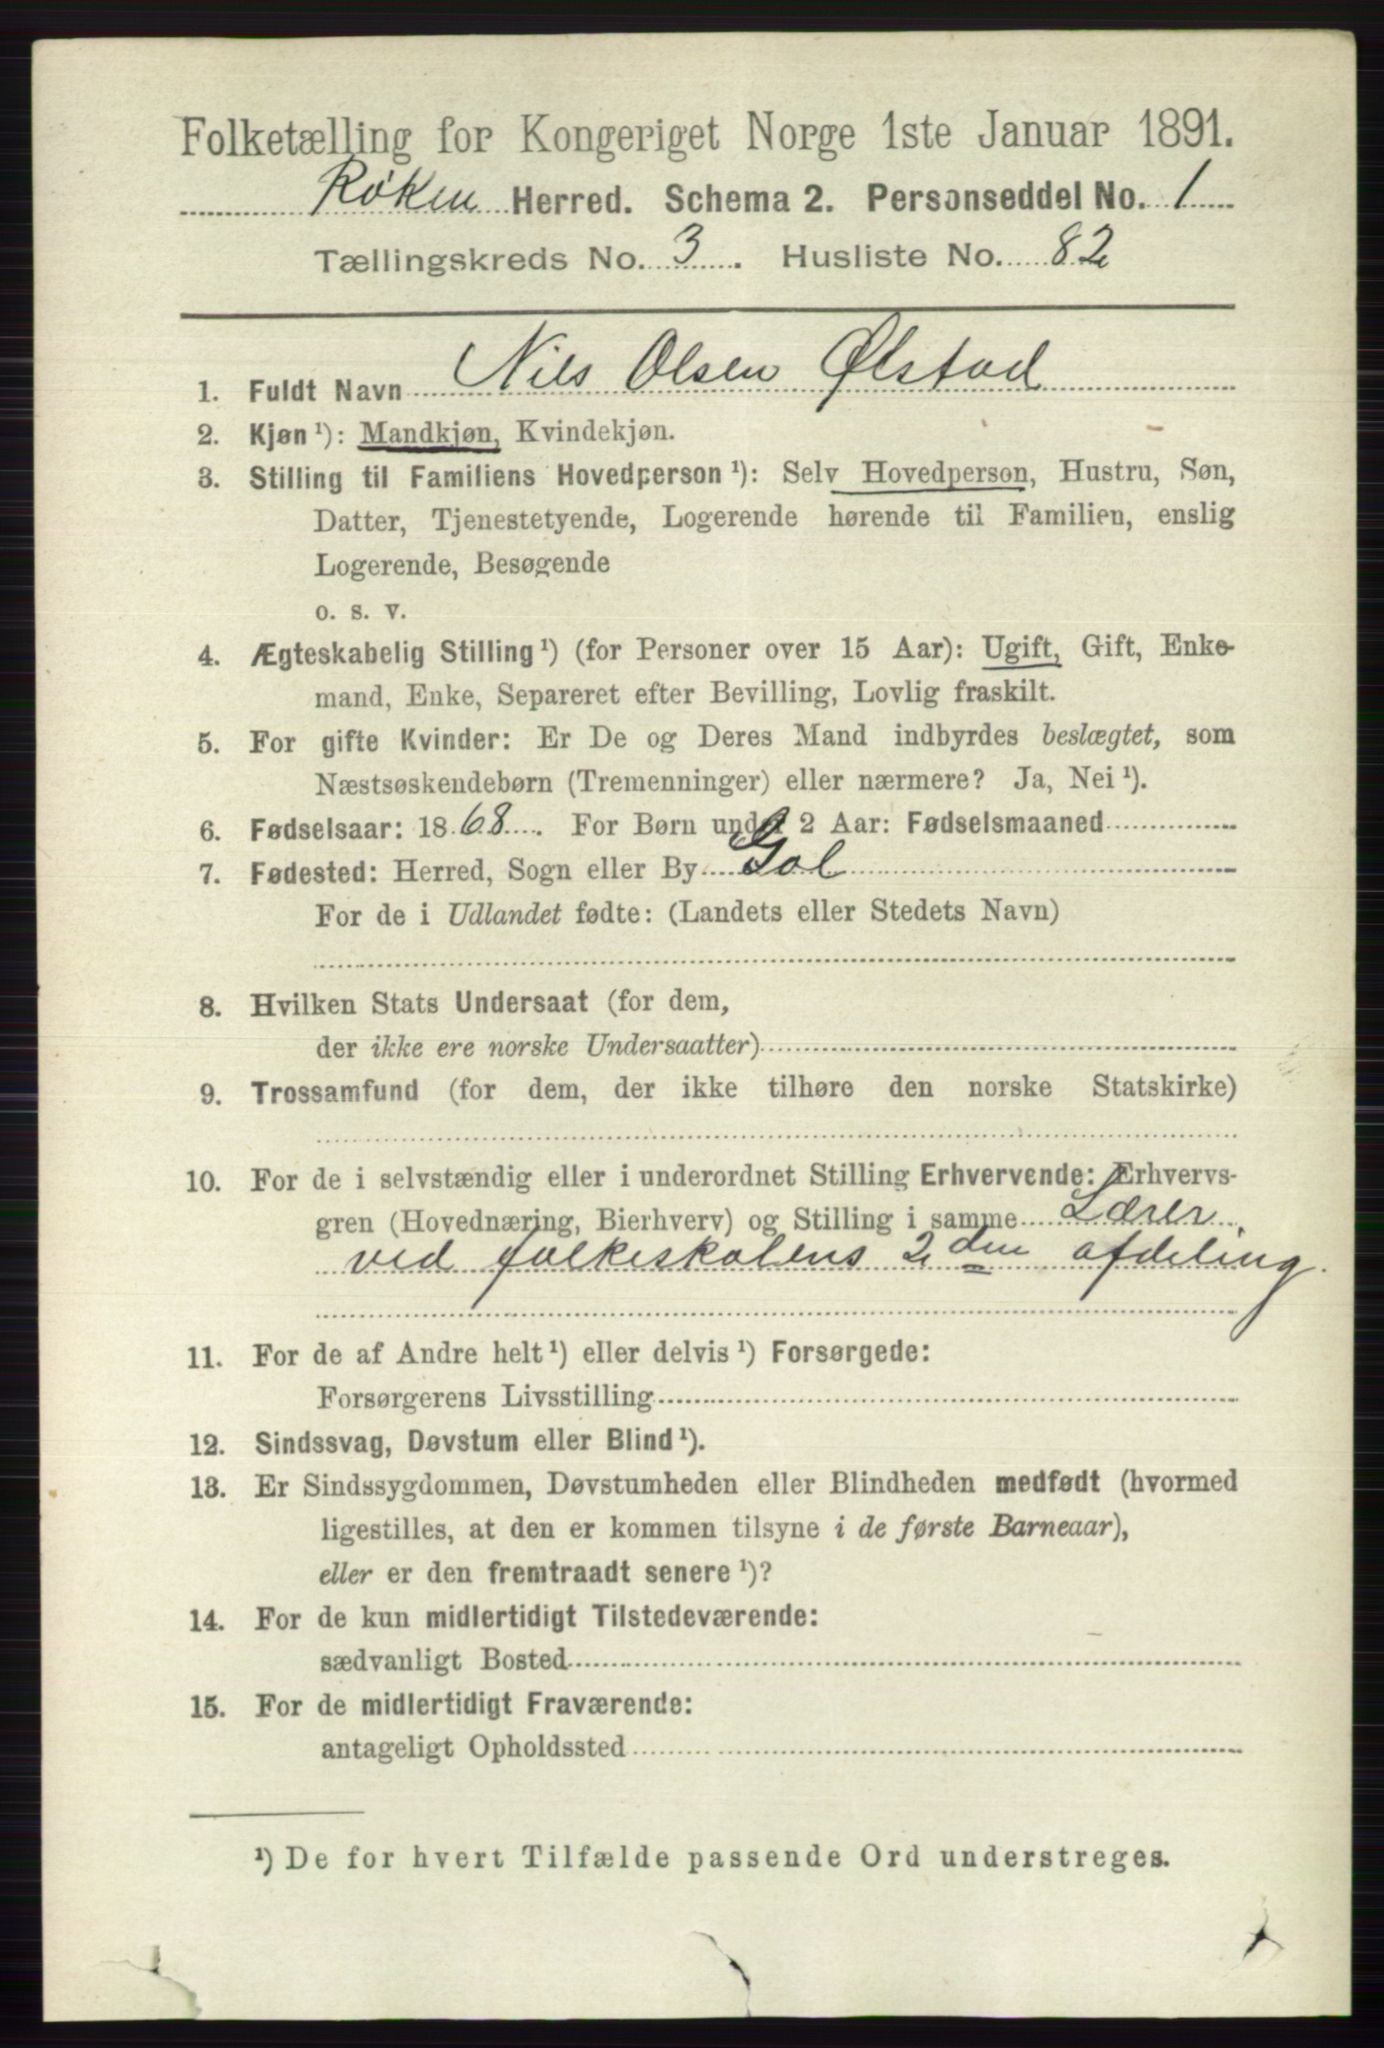 Folketælling for Kongeriget Norge 1ste Januar 1891.
Røken Herred. Schema 2. Personseddel No. 1
Tællingskreds No. 3. Husliste No. 82
1. Fuldt Navn Nils Olsen Ølstad
2. Kjøn ¹): Mandkjøn, Kvindekjøn.
3. Stilling til Familiens Hovedperson ¹): Selv Hovedperson, Hustru, Søn,
Datter, Tjenestetyende, Logerende hørende til Familien, enslig
Logerende, Besøgende
o. s. v.
4. Ægteskabelig Stilling ¹) (for Personer over 15 Aar): Ugift, Gift, Enke-
mand, Enke, Separeret efter Bevilling, Lovlig fraskilt.
5. For gifte Kvinder: Er De og Deres Mand indbyrdes beslægtet, som
Næstsøskendebørn (Tremenninger) eller nærmere? Ja, Nei ¹).
6. Fødselsaar: 1868. For Børn under 2 Aar: Fødselsmaaned
7. Fødested: Herred, Sogn eller By Gol
For de i Udlandet fødte: (Landets eller Stedets Navn)
8. Hvilken Stats Undersaat (for dem,
der ikke ere norske Undersaatter)
9. Trossamfund (for dem, der ikke tilhøre den norske Statskirke)
10. For de i selvstændig eller i underordnet Stilling Erhvervende: Erhvervs-
gren (Hovednæring, Bierhverv) og Stilling i samme Lærer
ved folkeskolens 2den afdeling.
11. For de af Andre helt ¹) eller delvis ¹) Forsørgede:
Forsørgerens Livsstilling
12. Sindssvag, Døvstum eller Blind ¹).
13. Er Sindssygdommen, Døvstumheden eller Blindheden medfødt (hvormed
ligestilles, at den er kommen tilsyne i de første Barneaar),
eller er den fremtraadt senere ¹)?
14. For de kun midlertidigt Tilstedeværende:
sædvanligt Bosted
15. For de midlertidigt Fraværende:
antageligt Opholdssted
¹) De for hvert Tilfælde passende Ord understreges.